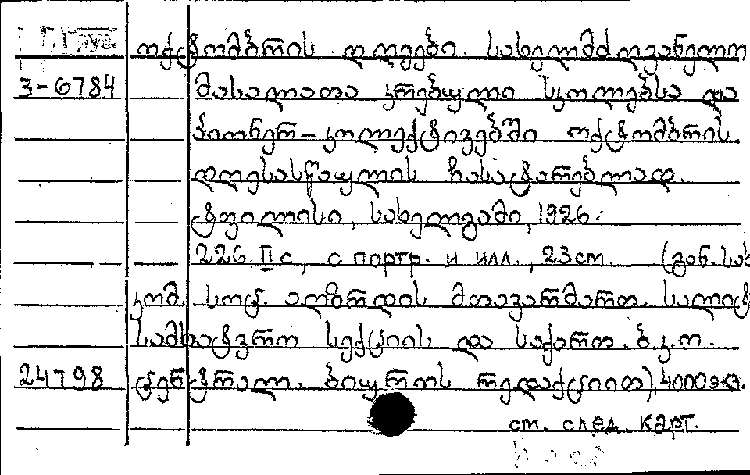 ოქტომბრის დღეები. სახელმძღვანელო
3-6784 მასალათა კრებული სკოლებსა და
პიონერ-კოლექტივებში ოქტომბრის
დღესასწაულის ჩასატარებლად.
ტფილისი, სახელგამი, 1926.
226. II с, с портр. и илл., 23 cm. (გან. სახ
კომ. სოც. აღზრდის მთავარმართ. სალიტ
სამხატვრო სექციის და საქართ. ბ.კ.ო.
24798 ცენტრალ. ბიუროს რედაქციით) 4000 ეგზ.
см. след. карт.